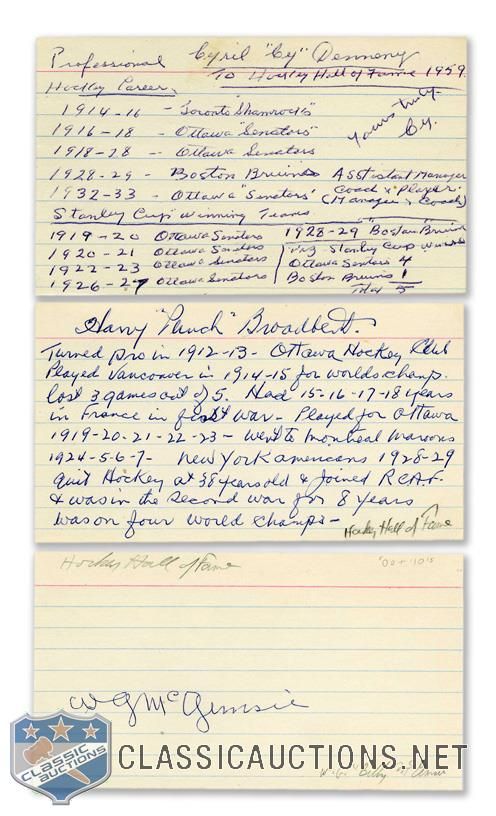 Professional Cyril "Cy" Denneny
Hockey Career. To Hockey Hall of Fame 1959.
1914-16 - Toronto Shamrocks"
1916-18 - Ottawa "Senators" Yours truly.
1918-28 - Ottawa Senators Cy.
1928-29 - Boston Bruins Assistant Manager
Coach & Player.
1932-33 - Ottawa "Senators" (Manager & Coach)
Stanley Cup Winning Teams
1919-20 Ottawa Senators 1928-29 "Boston" Bruins
1920-21 Ottawa Senators Stanley Cup
1922-23 Ottawa Senators Ottawa Senators 4
1926-27 Ottawa Senators Boston Bruins 1
Total 5
Harry "Punch" Broadbent.
Turned pro in 1912-13- Ottawa Hockey Club
Played Vancouver in 1914-15 for worlds champ.
lost 3 games out of 5. Had 15-16-17-18 years
in France in first war- Played for Ottawa
1919-20-21-22-23- went to Montreal Maroons
1924-5-6-7- New York americans 1928-29
quit Hockey at 38 years old & Joined R.C.A.F.
& was in the second war for 8 years
was on four world champs-
Hockey Hall of Fame
Hockey Hall of Fame '00+'10's
W G McGimsie
CLASSIC AUCTIONS
CLASSICAUCTIONS.NET
"Billy"